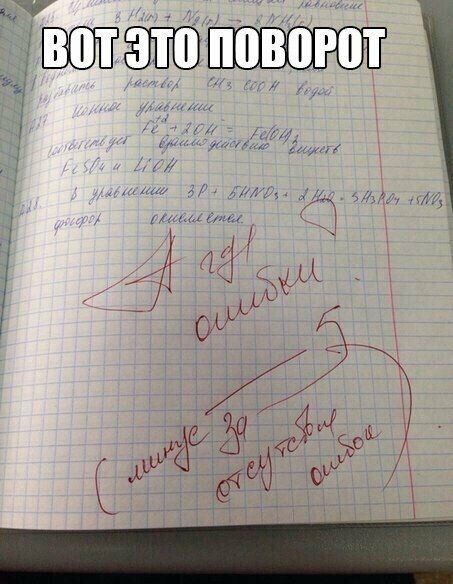 ВОТ ЭТО ПОВОРОТ
3 H₂(г) + N₂(г) → 2 NH₃(г)
раствор CH3 COOH водой
A27 Ионное уравнение
Fe⁺² + 2OH⁻ = Fe(OH)₂
соответствует взаимодействию веществ
FeSO₄ и LiOH
A28. В уравнении 3P + 5HNO₃ + 2H₂O = 3H₃PO₄ + 5NO
фосфор окисляется
А где
ошибки
5
(минус за
отсутствие
ошибок)